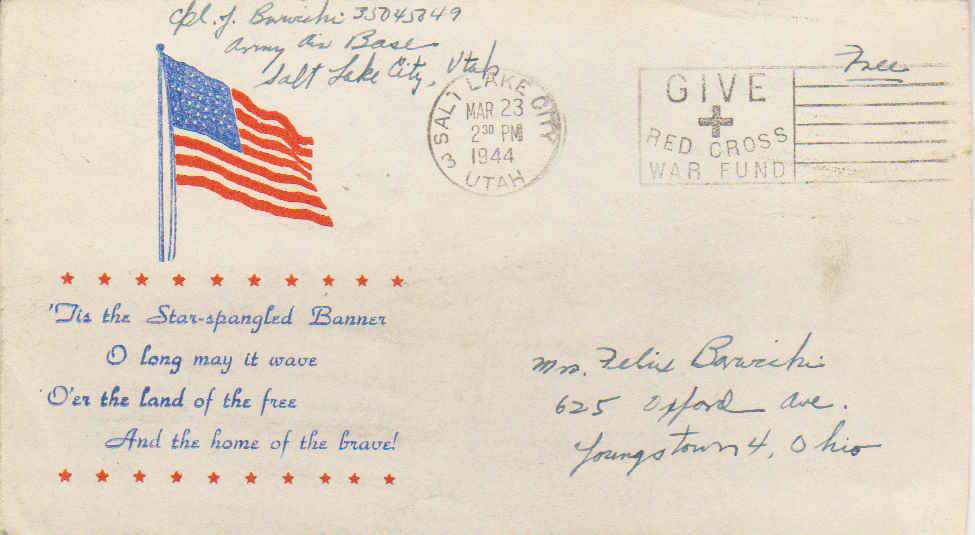 Cpl. J. Barwicki 35045049
Army Air Base
Salt Lake City, Utah
Free
3 SALT LAKE CITY
MAR 23
2³⁰ PM
1944
UTAH
GIVE
RED CROSS
WAR FUND
'Tis the Star-spangled Banner
O long may it wave
O'er the land of the free
And the home of the brave!
Mrs. Felix Barwicki
625 Oxford Ave.
Youngstown 4, Ohio